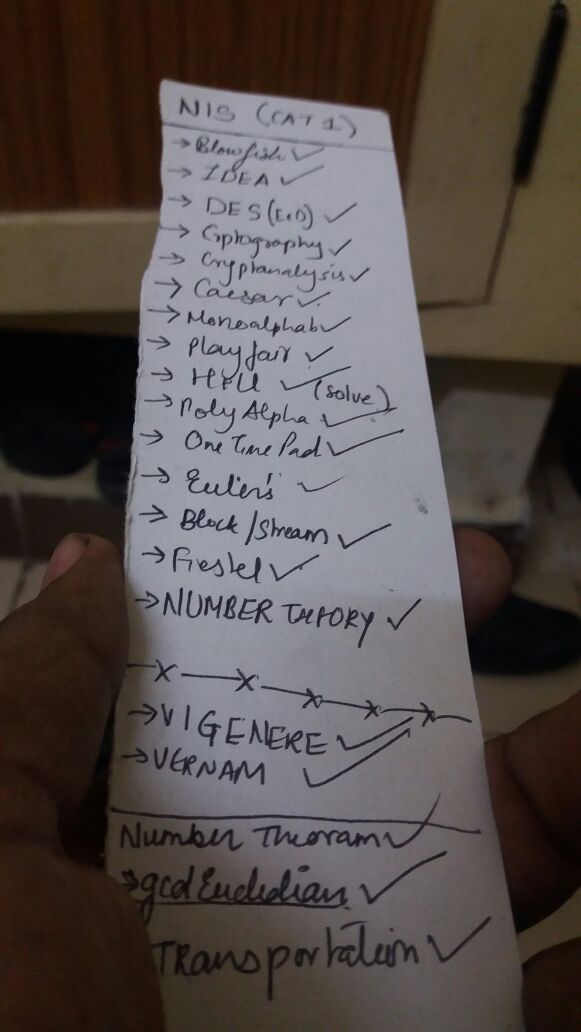 NIS (CAT 1)
→ Blowfish ✓
→ IDEA ✓
→ DES (E&D) ✓
→ Criptography ✓
→ Cryptanalysis ✓
→ Caesar ✓
→ Monoalphab ✓
→ Playfair ✓
→ Hill ✓ (solve)
→ Poly Alpha ✓
→ One Time Pad ✓
→ Euler's ✓
→ Block/Stream ✓
→ Fiestel ✓
→ NUMBER THEORY ✓
→ VIGENERE ✓
→ VERNAM ✓
Number Theoram ✓
→ gcd Euclidian ✓
Transportation ✓